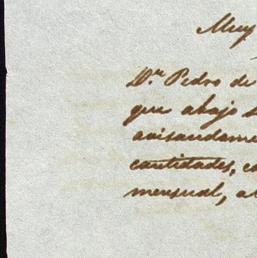 Muy
Dn. Pedro de
que abajo
avisandame
cantidades,
mensual, a